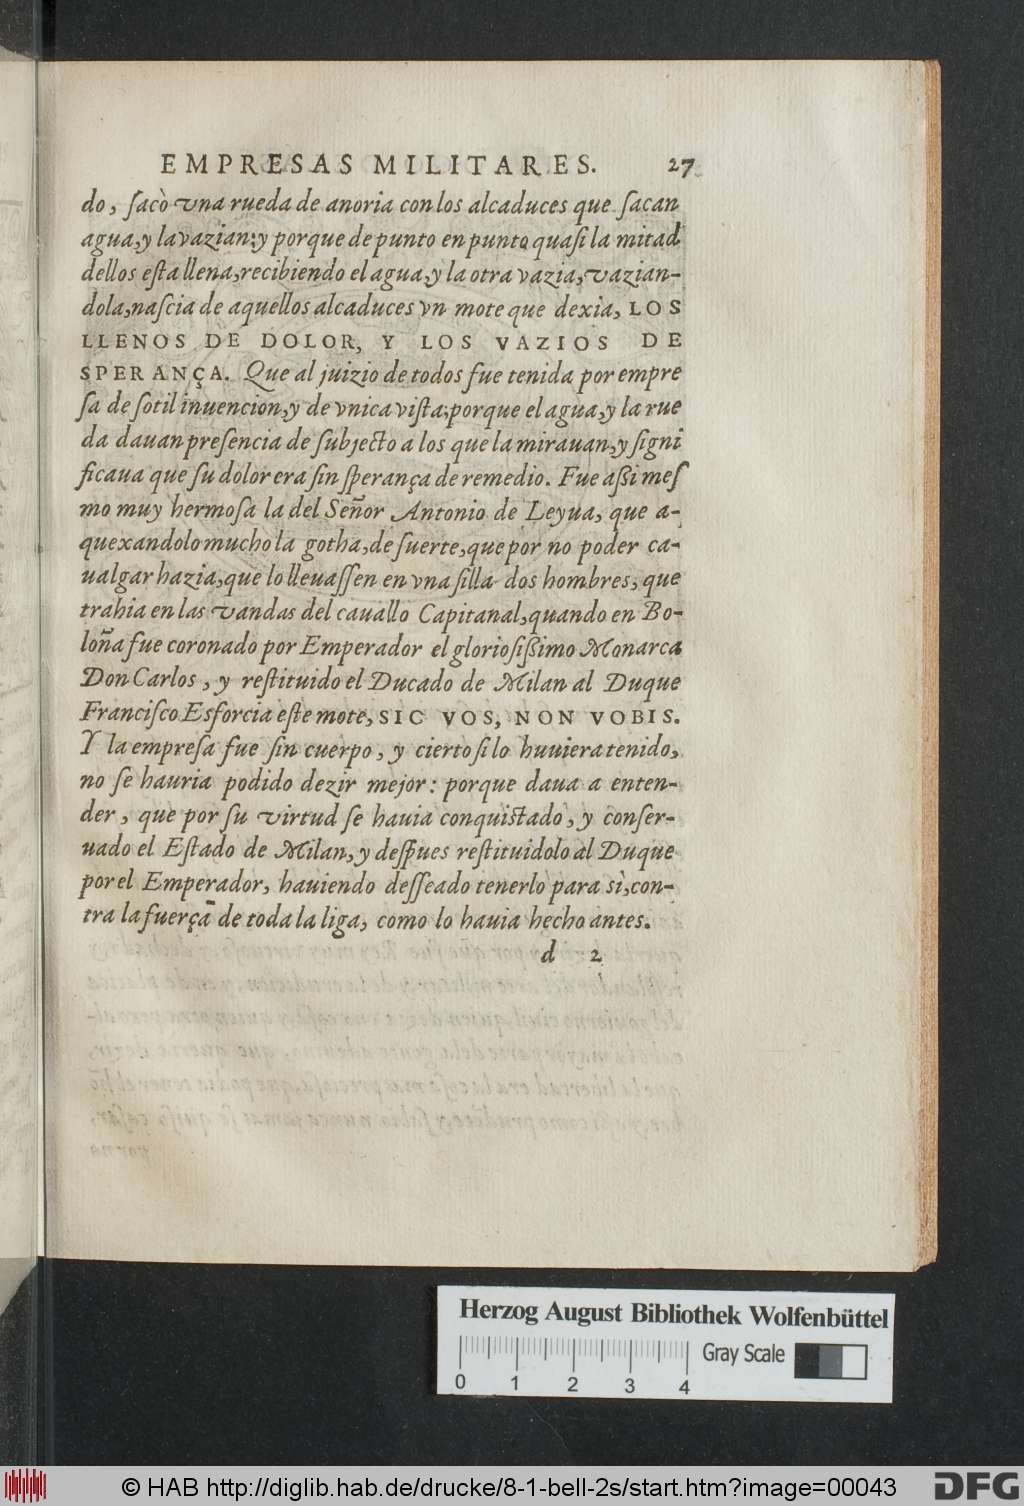 EMPRESAS MILITARES. 27
do, ſacò vna rueda de anoria con los alcaduces que ſacan
agua, y la vazian: y porque de punto en punto quaſi la mitad
dellos eſta llena, recibiendo el agua, y la otra vazia, vazian-
dola, naſcia de aquellos alcaduces vn mote que dexia, LOS
LLENOS DE DOLOR, Y LOS VAZIOS DE
SPERANÇA. Que al juizio de todos fue tenida por empre
ſa de ſotil inuencion, y de vnica viſta; porque el agua, y la rue
da dauan preſencia de ſubjecto a los que la mirauan, y ſigni
ficaua que ſu dolor era ſin ſperança de remedio. Fue aßi meſ
mo muy hermoſa la del Señor Antonio de Leyua, que a-
quexandolo mucho la gotha, de ſuerte, que por no poder ca-
ualgar hazia, que lo lleuaſſen en vna ſilla dos hombres, que
trahia en las vandas del cauallo Capitanal, quando en Bo-
loña fue coronado por Emperador el glorioſißimo Monarca
Don Carlos, y reſtituido el Ducado de Milan al Duque
Franciſco Esforcia eſte mote, SIC VOS, NON VOBIS.
Y la empreſa fue ſin cuerpo, y cierto ſi lo huuiera tenido,
no ſe hauria podido dezir mejor: porque daua a enten-
der, que por ſu virtud ſe hauia conquiſtado, y conſer-
uado el Eſtado de Milan, y deſpues reſtituidolo al Duque
por el Emperador, hauiendo deſſeado tenerlo para sì, con-
tra la fuerça de toda la liga, como lo hauia hecho antes.
d 2
Herzog August Bibliothek Wolfenbüttel
Gray Scale
0 1 2 3 4
© HAB http://diglib.hab.de/drucke/8-1-bell-2s/start.htm?image=00043
DFG